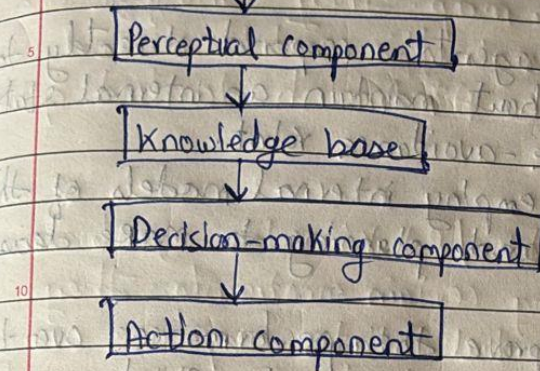 5
Perceptual component
Knowledge base
Decision-making component
10
Action component